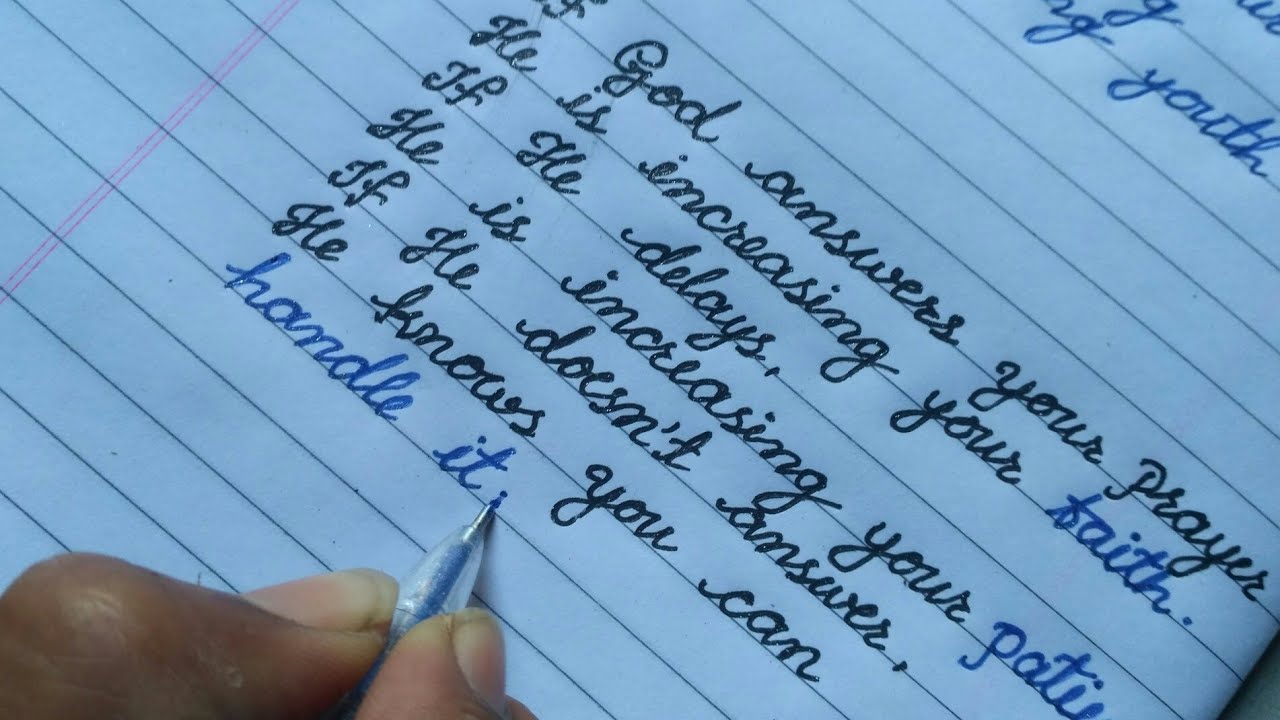 youth
If God answers your prayer
He is increasing your faith.
If He delays,
He is increasing your patie
If He doesn't answer,
He knows you can
handle it.